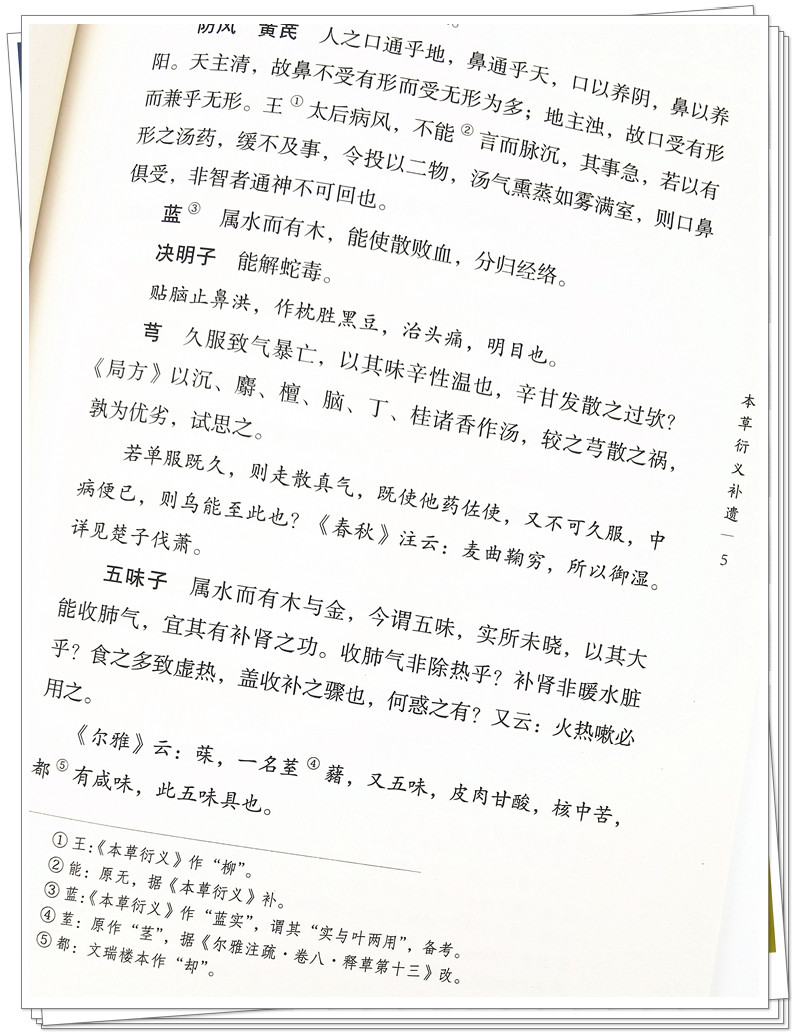 防风 黄芪 人之口通乎地，鼻通乎天，口以养阴，鼻以养
阳。天主清，故鼻不受有形而受无形为多；地主浊，故口受有形
而兼乎无形。王①太后病风，不能②言而脉沉，其事急，若以有
形之汤药，缓不及事，令投以二物，汤气熏蒸如雾满室，则口鼻
俱受，非智者通神不可回也。
蓝③ 属水而有木，能使散败血，分归经络。
决明子 能解蛇毒。
贴脑止鼻洪，作枕胜黑豆，治头痛，明目也。
芎 久服致气暴亡，以其味辛性温也，辛甘发散之过欤？
《局方》以沉、麝、檀、脑、丁、桂诸香作汤，较之芎散之祸，
孰为优劣，试思之。
若单服既久，则走散真气，既使他药佐使，又不可久服，中
病便已，则乌能至此也？《春秋》注云：麦曲鞠穷，所以御湿。
详见楚子伐萧。
五味子 属水而有木与金，今谓五味，实所未晓，以其大
能收肺气，宜其有补肾之功。收肺气非除热乎？补肾非暖水脏
乎？食之多致虚热，盖收补之骤也，何惑之有？又云：火热嗽必
用之。
《尔雅》云：菋，一名荎④藸，又五味，皮肉甘酸，核中苦，
都⑤有咸味，此五味具也。
①王：《本草衍义》作“柳”。
②能：原无，据《本草衍义》补。
③蓝：《本草衍义》作“蓝实”，谓其“实与叶两用”，备考。
④荎：原作“茎”，据《尔雅注疏·卷八·释草第十三》改。
⑤都：文瑞楼本作“却”。
本草衍义补遗
5